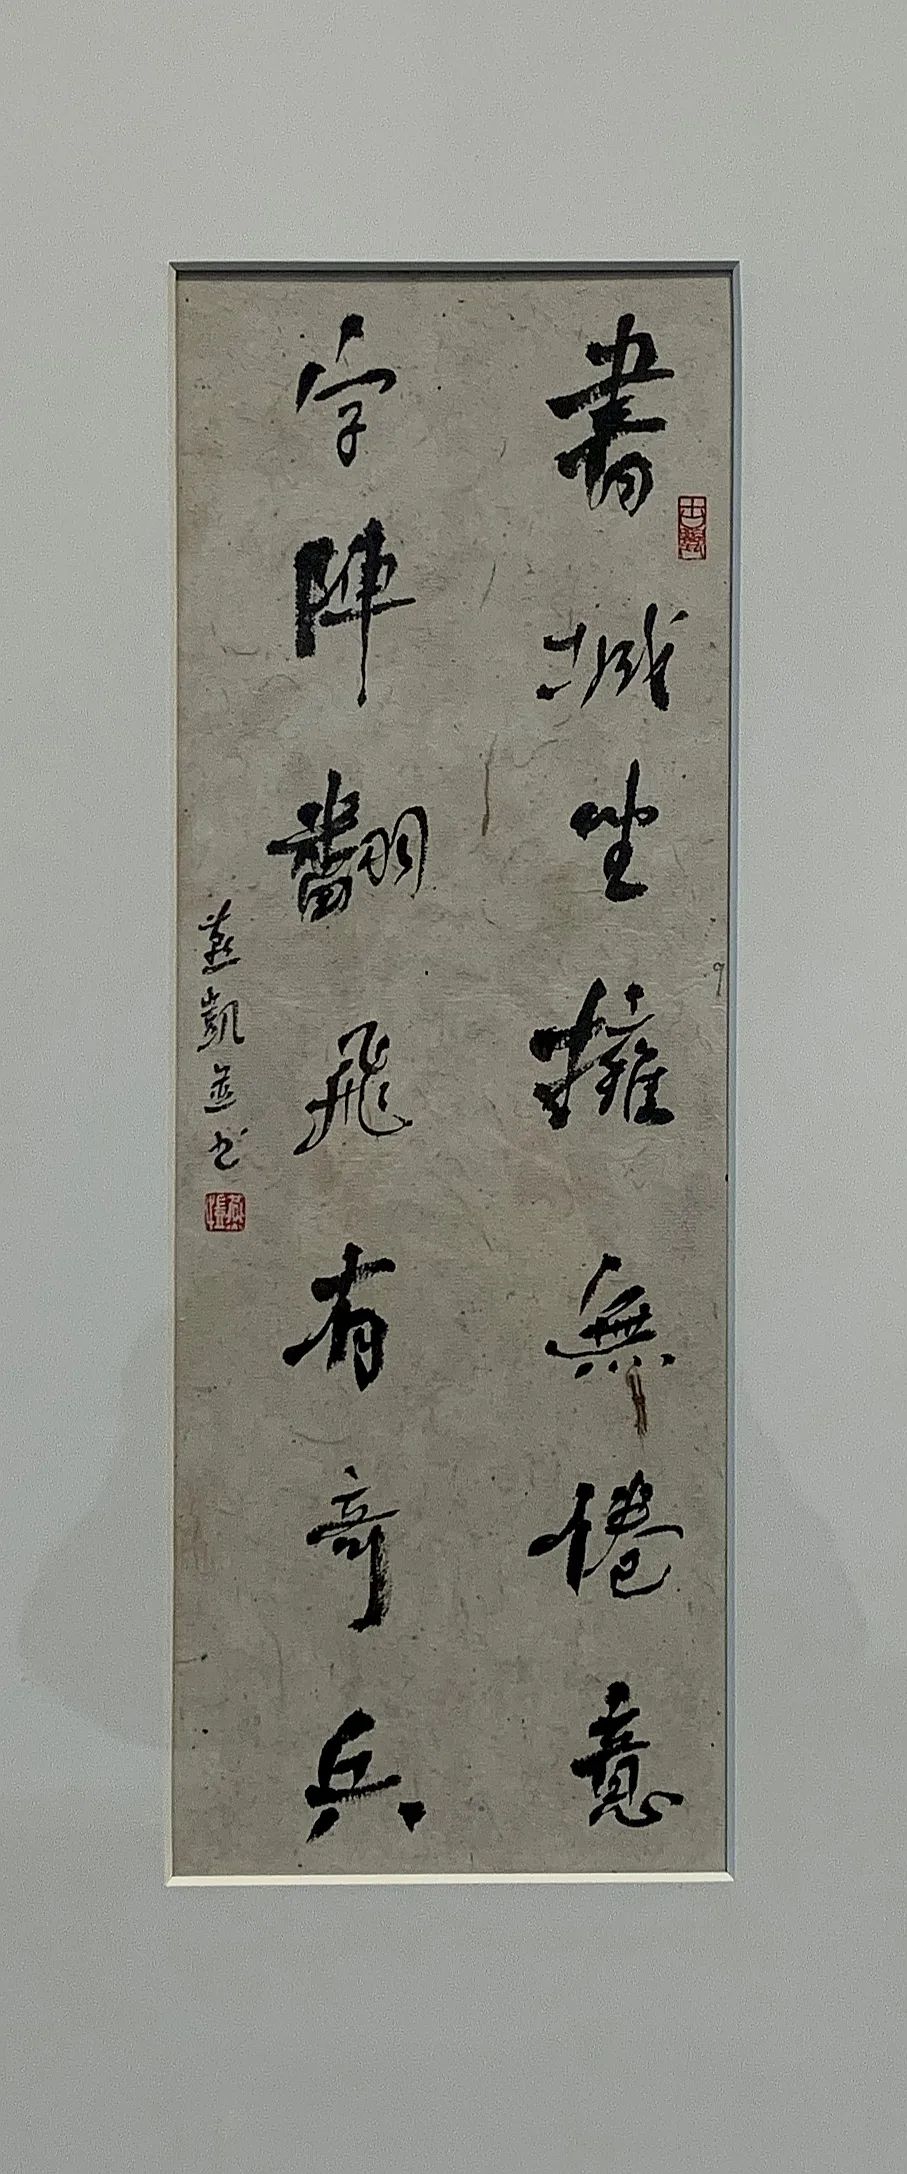 書城坐擁無倦意
字陣翻飛有奇兵
燕凱並书